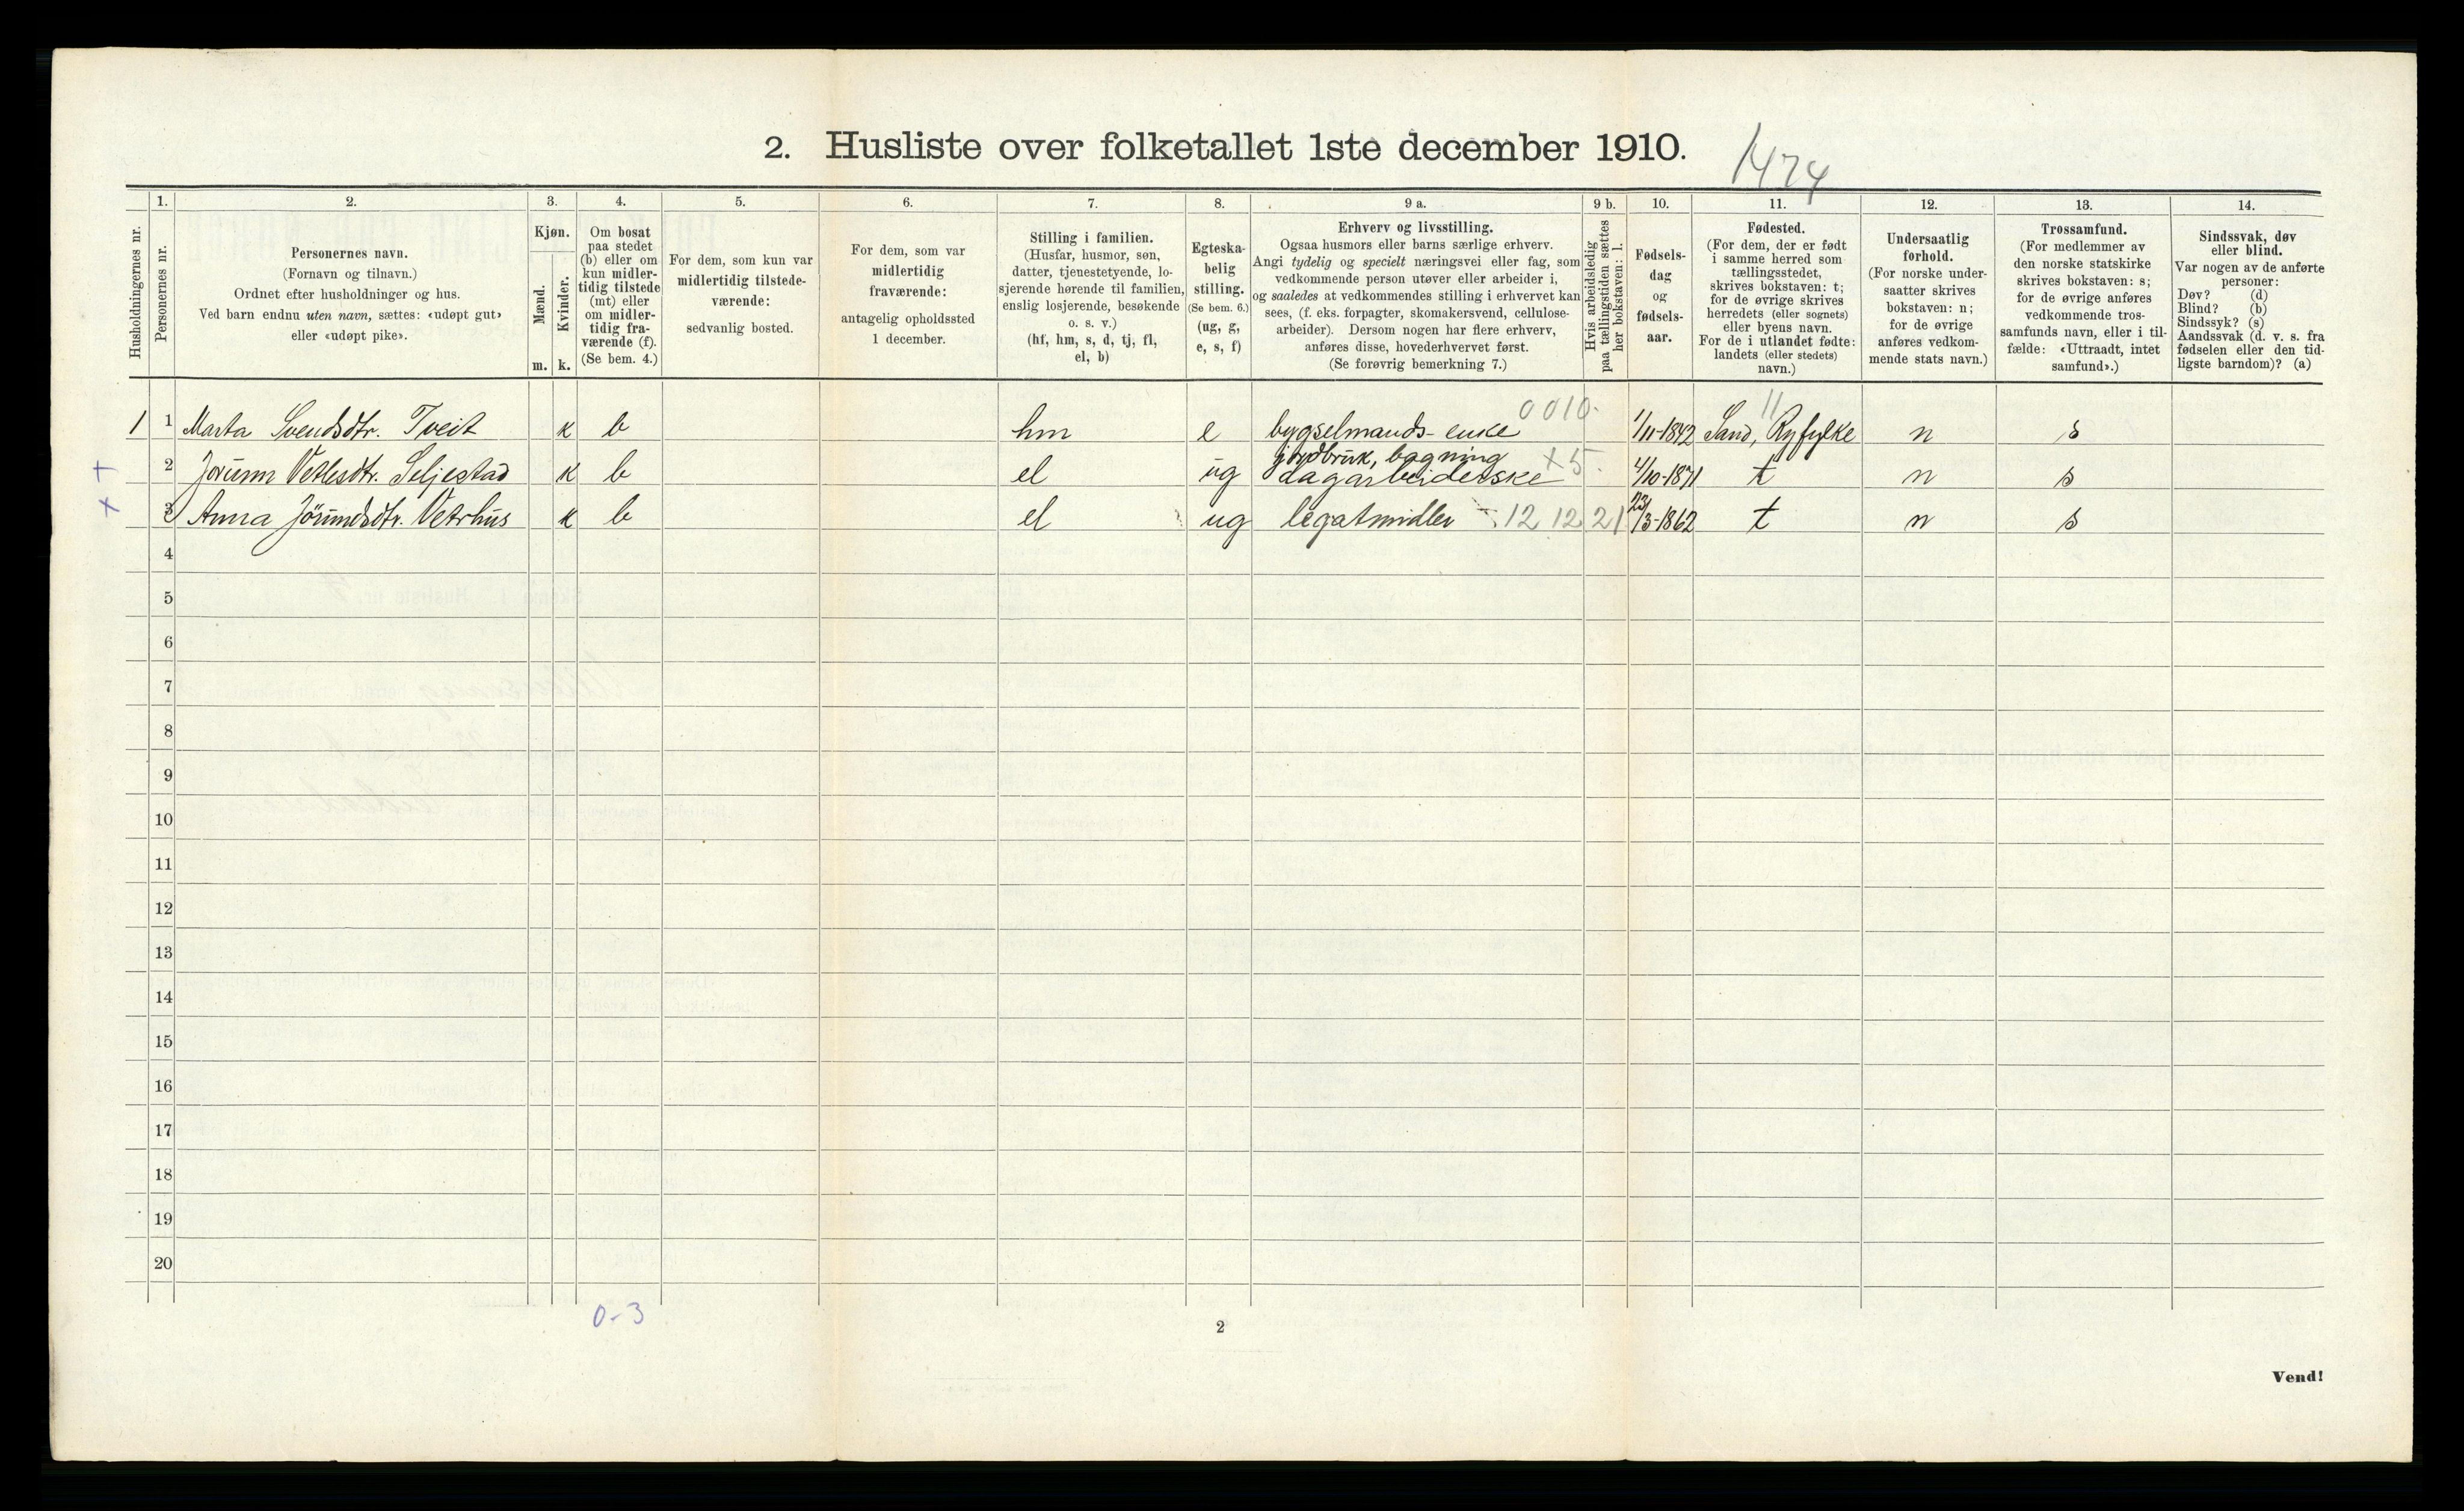 2. Husliste over folketallet 1ste december 1910.
1474
1.
2.
3.
4.
5.
6.
7.
8.
9 a.
9 b.
10.
11.
12.
13.
14.
Husholdningernes nr.
Personernes nr.
Personernes navn.
(Fornavn og tilnavn.)
Ordnet efter husholdninger og hus.
Ved barn endnu uten navn, sættes: «udøpt gut»
eller «udøpt pike».
Kjøn.
Mænd.
Kvinder.
m.
k.
Om bosat
paa stedet
(b) eller om
kun midler-
tidig tilstede
(mt) eller
om midler-
tidig fra-
værende (f).
(Se bem. 4.)
For dem, som kun var
midlertidig tilstede-
værende:
sedvanlig bosted.
For dem, som var
midlertidig
fraværende:
antagelig opholdssted
1 december.
Stilling i familien.
(Husfar, husmor, søn,
datter, tjenestetyende, lo-
sjerende hørende til familien,
enslig losjerende, besøkende
o. s. v.)
(hf, hm, s, d, tj, fl,
el, b)
Egteska-
belig
stilling.
(Se bem. 6.)
(ug, g,
e, s, f)
Erhverv og livsstilling.
Ogsaa husmors eller barns særlige erhverv.
Angi tydelig og specielt næringsvei eller fag, som
vedkommende person utøver eller arbeider i,
og saaledes at vedkommendes stilling i erhvervet kan
sees, (f. eks. forpagter, skomakersvend, cellulose-
arbeider). Dersom nogen har flere erhverv,
anføres disse, hovederhvervet først.
(Se forøvrig bemerkning 7.)
Hvis arbeidsledig
paa tællingstiden sættes
her bokstaven: l.
Fødsels-
dag
og
fødsels-
aar.
Fødested.
(For dem, der er født
i samme herred som
tællingsstedet,
skrives bokstaven: t;
for de øvrige skrives
herredets (eller sognets)
eller byens navn.
For de i utlandet fødte:
landets (eller stedets)
navn.)
Undersaatlig
forhold.
(For norske under-
saatter skrives
bokstaven: n;
for de øvrige
anføres vedkom-
mende stats navn.)
Trossamfund.
(For medlemmer av
den norske statskirke
skrives bokstaven: s;
for de øvrige anføres
vedkommende tros-
samfunds navn, eller i til-
fælde: «Uttraadt, intet
samfund».)
Sindssvak, døv
eller blind.
Var nogen av de anførte
personer:
Døv? (d)
Blind? (b)
Sindssyk? (s)
Aandssvak (d. v. s. fra
fødselen eller den tid-
ligste barndom)? (a)
0010. 11
1 1 Marta Svendsdtr. Tveit k b hm e bygselmands-enke 1/11-1842 Sand, Ryfylke n s
jordbruk, bagning
2 Jorunn Vetlesdtr. Seljestad k b el ug dagarbeiderske x5. 4/10-1871 t n s
3 Anna Jörundsdtr. Vetrhus k b el ug legatmidler 12 12 21 23/3-1862 t n s
4
5
6
7
8
9
10
11
12
13
14
15
16
17
18
19
20
0-3
2
Vend!